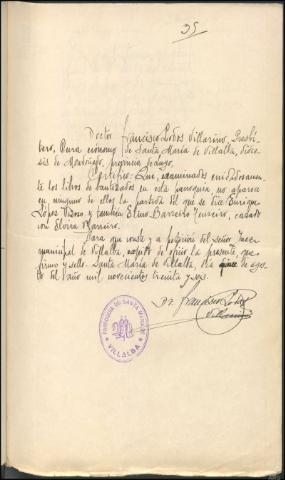 35
Doctor Francisco Lobos Villariño, Presbí-
tero, Cura ecónomo de Santa María de Villalba, dióce-
sis de Mondoñedo, provincia Lugo.
Certifico: Que, examinados cuidadosamen-
te los libros de bautizados en esta parroquia, no aparece
en ninguno de ellos la partida del que se dice Enrique
López y también Elino Barreiro, casado
con Elvira Barreiro.
Para que conste y a petición del señor Juez
municipal de Villalba, expido la presente que
firmo y sello. Santa María de Villalba, quince de
del año mil novecientos treinta y seis.
Dr. Francisco Lobos
Villariño
PARROQUIA DE SANTA MARIA DE
VILLALBA